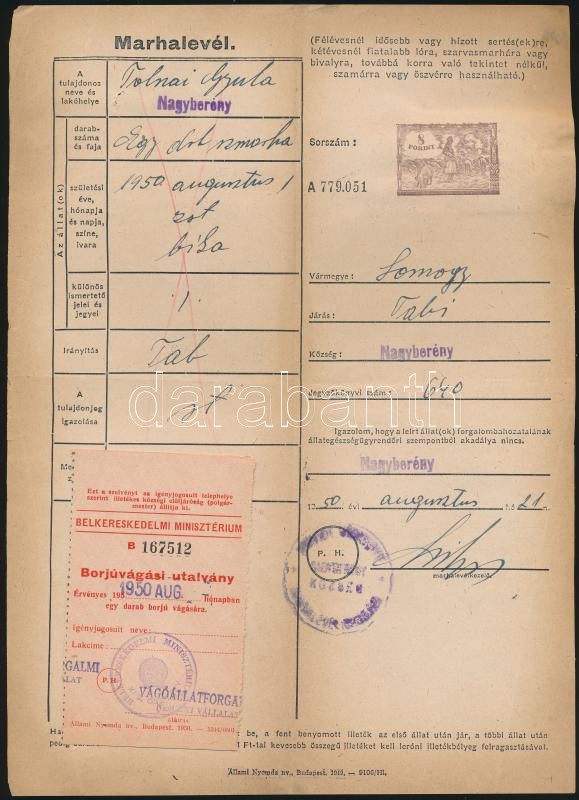 Marhalevél.
(Félévesnél idősebb vagy hízott sertés(ek)re,
kétévesnél fiatalabb lóra, szarvasmarhára vagy
bivalyra, továbbá korra való tekintet nélkül,
szamárra vagy öszvérre használható.)
A
tulajdonos
neve és
lakóhelye
Tolnai Gyula
Nagyberény
darab-
száma
és faja
Egy drb szmarha
Az állat(ok)
születési
éve,
hónapja
és napja,
színe,
ivara
1950 augusztus 1
zst
bika
különös
ismertető
jelei és
jegyei
Irányítás
Tab
A
tulajdonjog
igazolása
Sorszám:
8
FORINT
A 779.051
Vármegye: Somogy
Járás: Tabi
Község: Nagyberény
Jegyzőkönyvi szám: 640
Igazolom, hogy a leírt állat(ok) forgalombahozatalának
állategészségügyrendőri szempontból akadálya nincs.
Nagyberény
50 évi augusztus hó 21-n.
P. H.
marhalevélkezelő.
Ezt a szelvényt az igényjogosult telephelye
szerint illetékes községi elöljáróság (polgár-
mester) állítja ki.
BELKERESKEDELMI MINISZTÉRIUM
B 167512
Borjúvágási utalvány
Érvényes 195 1950 AUG. hónapban
egy darab borjú vágására.
Igényjogosult neve:
Lakcíme:
P. H.
VÁGÓÁLLATFORGA
NEMZETI VÁLLALAT
aláírás
Állami Nyomda nv., Budapest. 1950.
be, a fent benyomott illeték az első állat után jár, a többi állat után
Ft-tal kevesebb összegű illetéket kell leróni illetékbélyeg felragasztásával.
Állami Nyomda nv., Budapest. 1949. — 9106/HI.
darabanth